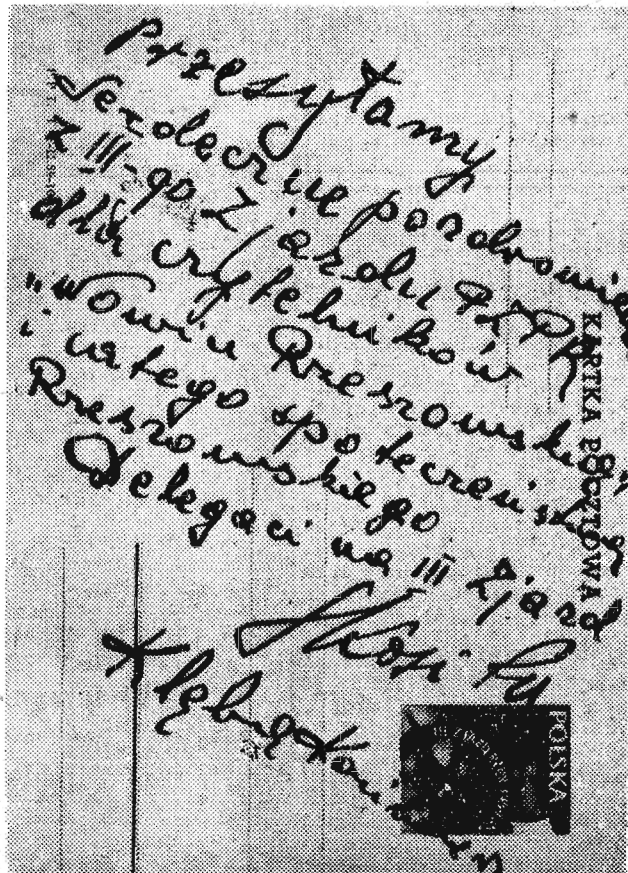 Przesyłamy
Serdeczne pozdrowienia
z III-go Zjazdu PZPR
dla czytelników
"Nowin Rzeszowskich"
i całego społeczeństwa
Rzeszowskiego
Delegaci na III Zjazd
KARTKA POCZTOWA
POLSKA